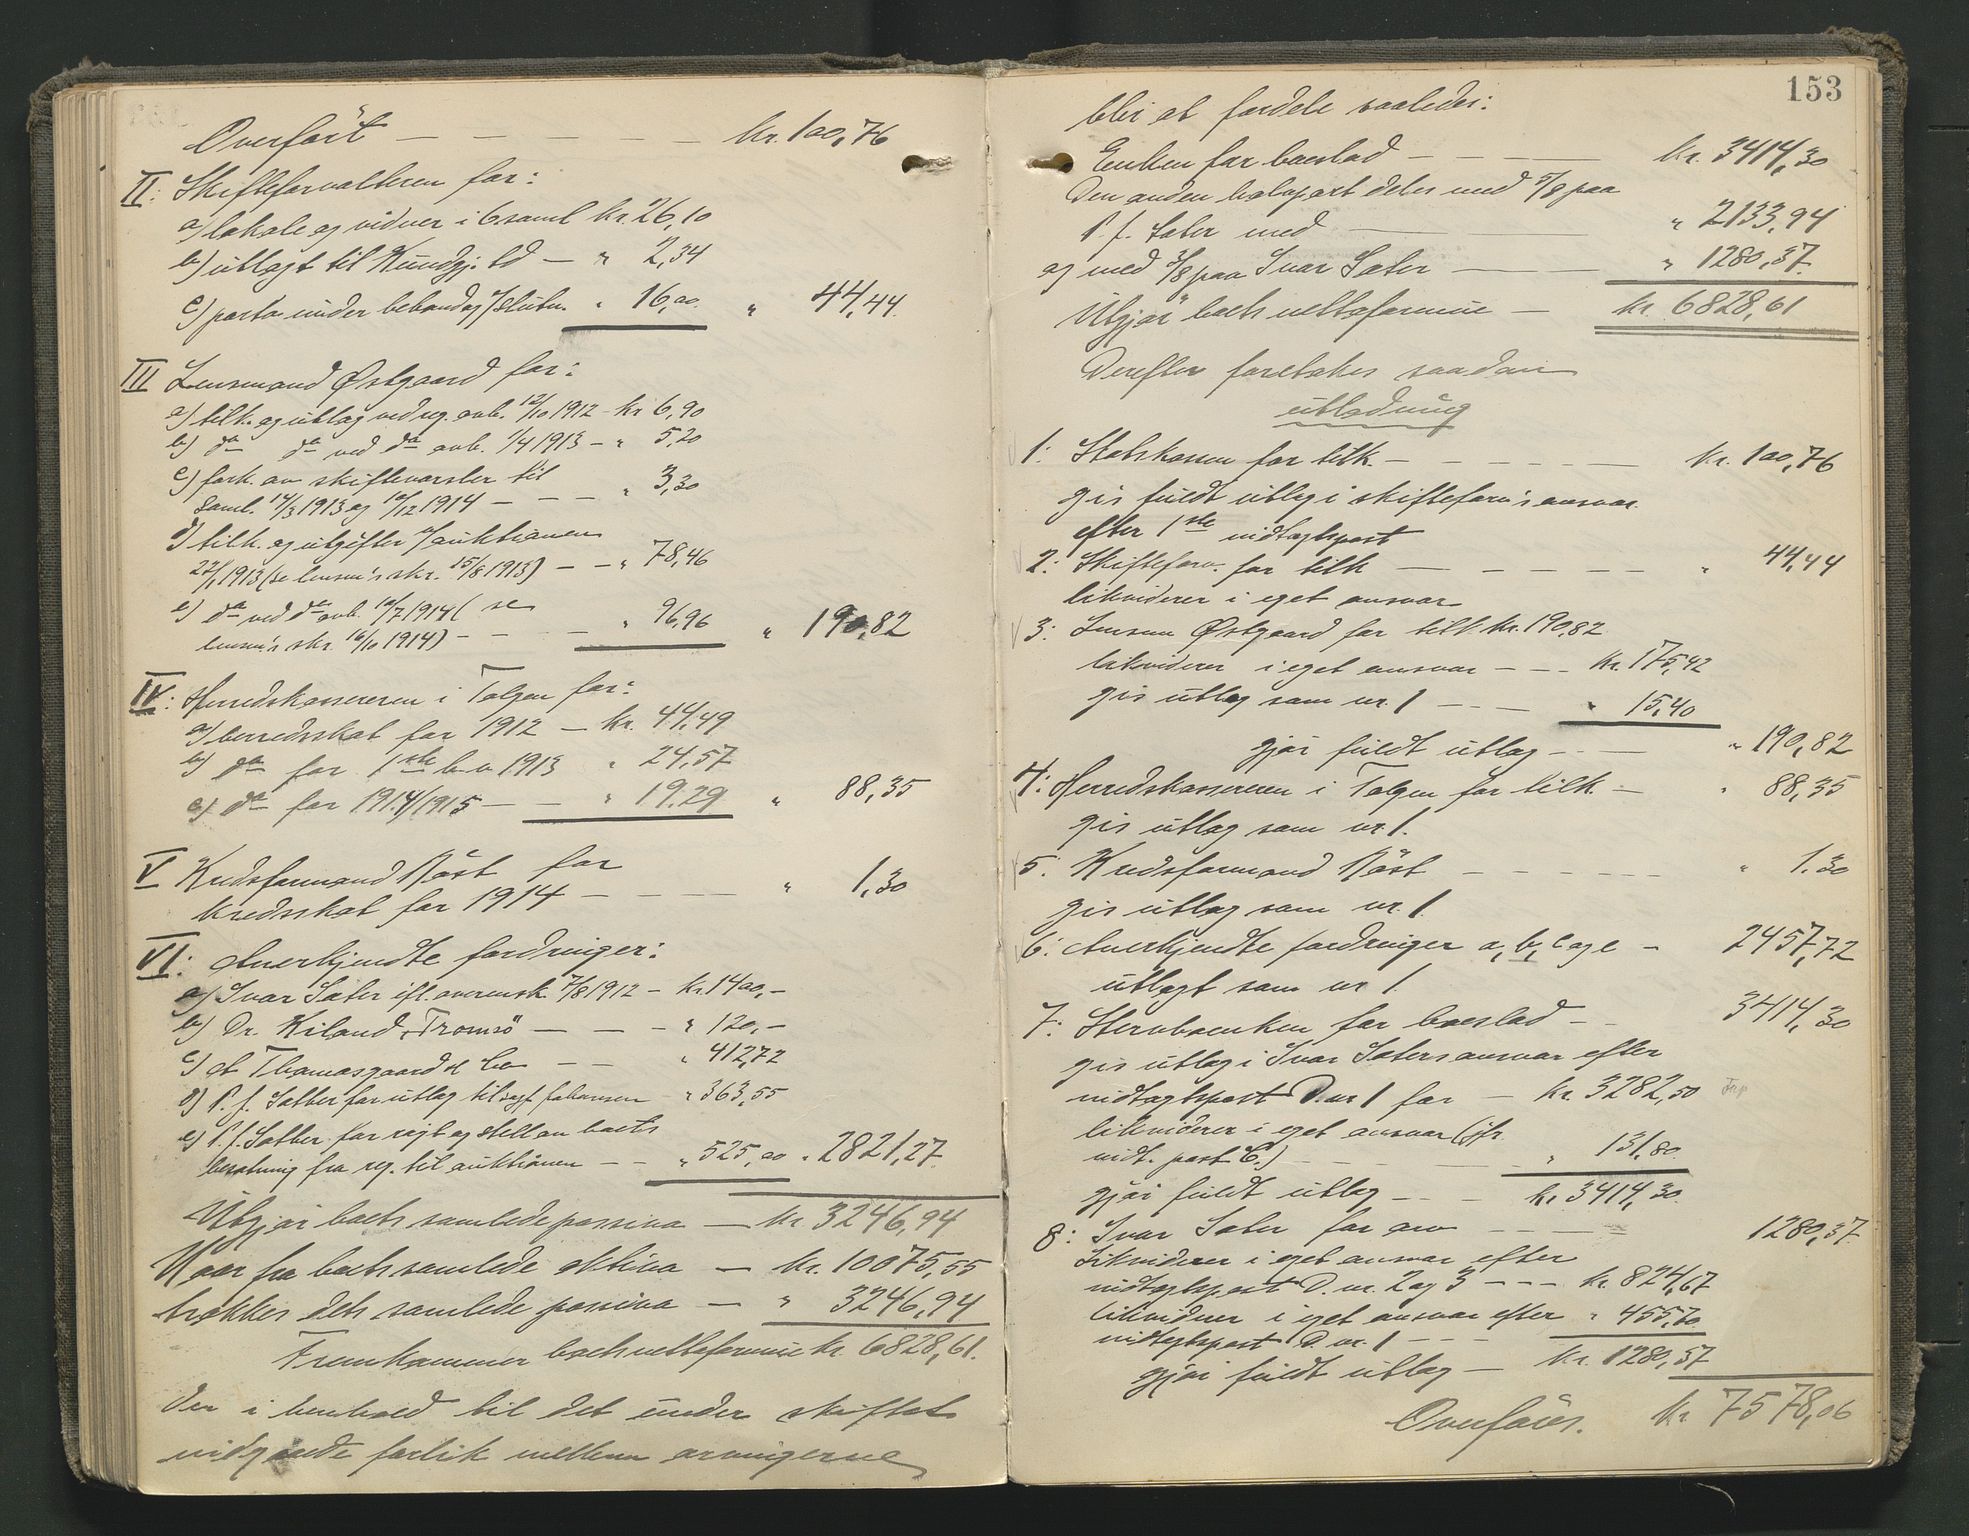 Overført — — — — kr. 100,76
II: Skifteforvalteren for:
a) lokale og vidner i 6 saml kr. 26,10
b) utlagt til Kundgj. td — " 2,34
c) porto under behandlg/slutn. " 16,00. " 44,44.
III Lensmand Østgaard for:
a) tilk. og utlæg ved reg. avh. 12/10 1912 - kr 6,90
b) do do ved do avh. 1/4 1913 — " 5,20
c) fork. av skiftevarsler til
saml. 14/3 1913 og 10/12 1914 — — — " 3,30
d) tilk. og utgifter v/auktionen
27/1 1913 (se lensm's skr. 15/8 1913) — — " 78,46
e) do ved do avh. 10/7 1914 ( se
lensm's skr. 16/10 1914) - — — " 96,96 " 190,82
IV: Herredskassereren i Tolgen for:
a) herredsskat for 1912 — kr. 44,49
b) do for 1ste h.v 1913 " 24,57
c) do for 1914/1915 — — " 19,29 " 88,35
V Kredsformand Røst for
kredsskat for 1914 — — — — " 1,30
VI: Anerkjendte fordringer:
a) Ivar Sæter ifl. overensk. 7/8 1912 — kr. 1400,-
b) Dr. Kiland, Tromsø — — — " 120,-
c) A Thomasgaard & Co — — " 412,72
d) P. J. Sæther for utlæg til sagf. Johansen " 363,55
e) P. J. Sæther for røgt og stell av boets
besætning fra reg. til auktionen — — " 525,00 " 2821,27
Utgjør boets samlede passiva — kr. 3246,94
Naar fra boets samlede aktiva — kr. 10075,55
trækkes dets samlede passiva — " 3246,94
Fremkommer boets nettoformue kr. 6828,61.
Der i henhold til det under skiftet
indgaaede forlik mellem arvingerne
153
blir at fordele saaledes:
Enken for boeslod — — — kr. 3414,30
Den anden halvpart deles med 5/8 paa
P. J. Sæter med — — — " 2133,94
og med 3/8 paa Ivar Sæter — — " 1280,37.
Utgjør boets nettoformue — kr 6828,61
Derefter foretakes saadan
utlodning
1: Statskassen for tilk. — — — — kr. 100,76
gis fuldt utlæg i skifteforv's ansvar
efter 1ste indtægtspost
2: Skifteforv. for tilk — — — — " 44,44
likviderer i eget ansvar
3: Lensm Østgaard for tilk. kr. 190,82
likviderer i eget ansvar — — kr. 175,42
gis utlæg som nr. 1 — — " 15,40
gjør fuldt utlæg — — " 190,82
4: Herredskassereren i Tolgen for tilk. — " 88,35
gis utlæg som nr. 1.
5: Kredsformand Røst — — — — " 1,30
gis utlæg som nr. 1.
6: Anerkjendte fordringer a, b, c og e — 2457,72
utlagt som nr 1.
7: Stervboenken for boeslod — — 3414,30
gis utlæg i Ivar Sæters ansvar efter
indtægtspost D. nr 1 for — kr. 3282,50
likviderer i eget ansvar (jfr.
indt. post C.) — — — — " 131,80
gjør fuldt utlæg — — kr. 3414,30.
8: Ivar Sæter for arv — — — 1280,37.
Likviderer i eget ansvar efter
indtægtspost D. nr. 2 og 3 — — kr. 824,67
likviderer i eget ansvar efter " 455,70
indtægtspost D. nr. 1 — — —
gjør fuldt utlæg — kr. 1280,37
Overføres. kr 7578,06